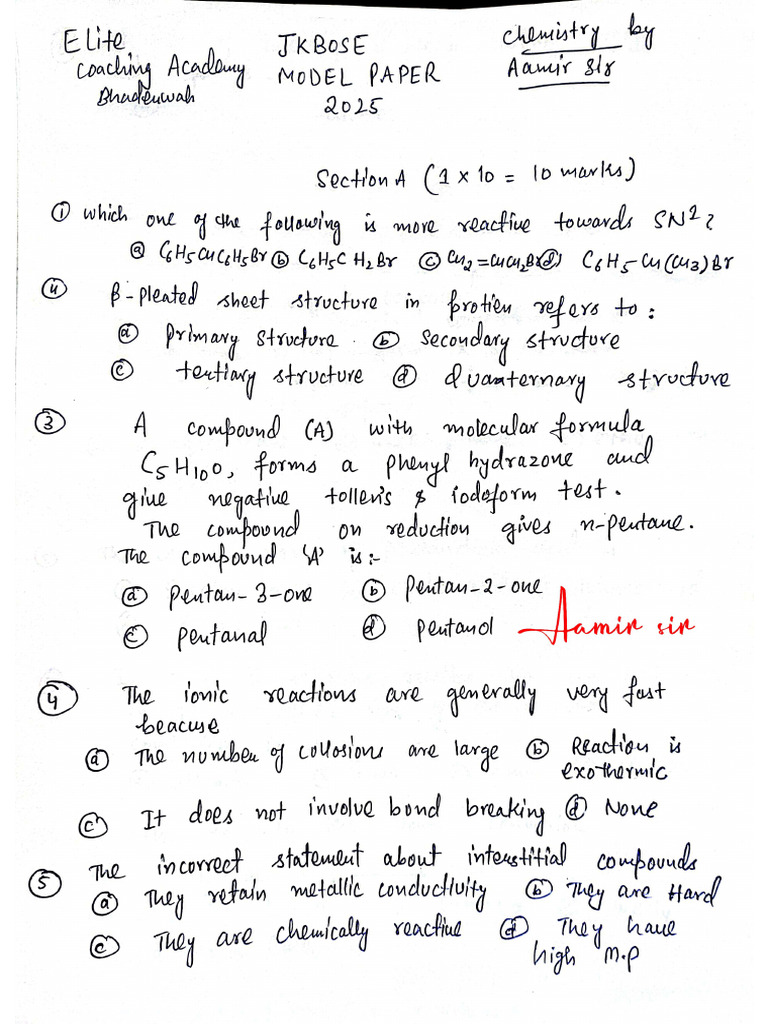 Elite JKBOSE Chemistry by
Coaching Academy MODEL PAPER Aamir Sir
Bhaderwah 2025
Section A (1 x 10 = 10 marks)
① which one of the following is more reactive towards SN²?
ⓐ C6H5CHC6H5Br ⓑ C6H5CH2Br ⓒ CH2=CHCH2Br ⓓ C6H5-CH(CH3)Br
⑪ β-pleated sheet structure in protien refers to :
ⓐ primary structure. ⓑ secondary structure
ⓒ tertiary structure ⓓ Quarternary structure
③ A compound (A) with molecular formula
C5H10O, forms a phenyl hydrazone and
give negative tollen's & iodoform test.
The compound on reduction gives n-pentane.
The compound 'A' is :-
ⓐ pentan-3-one ⓑ pentan-2-one
ⓒ pentanal ⓓ pentanol Aamir sir
④ The ionic reactions are generally very fast
beacuse
ⓐ The number of collosions are large ⓑ Reaction is
exothermic
ⓒ It does not involve bond breaking ⓓ None
⑤ The incorrect statement about interstitial compounds
ⓐ They retain metallic conductivity ⓑ They are Hard
ⓒ They are chemically reactive ⓓ They have
high M.P